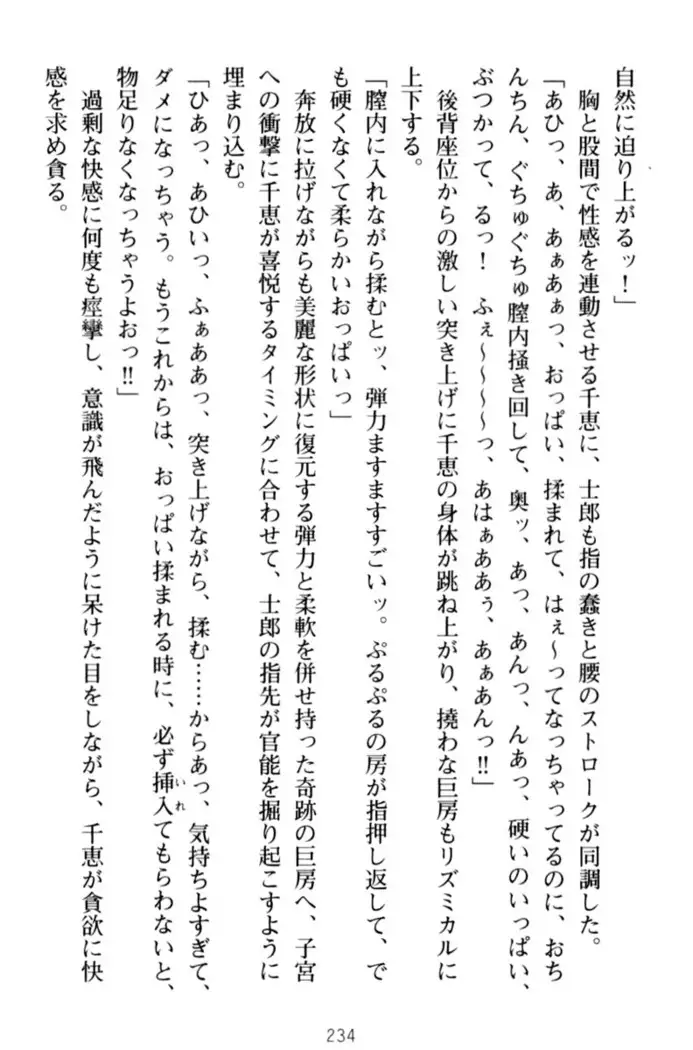 自然に迫り上がるッ！」
胸と股間で性感を連動させる千恵に、士郎も指の蠢きと腰のストロークが同調した。
「あひっ、あ、あぁあぁっ、おっぱい、揉まれて、はぇ～ってなっちゃってるのに、おち
んちん、ぐちゅぐちゅ膣内掻き回して、奥ッ、あっ、あんっ、んあっ、硬いのいっぱい、
ぶつかって、るっ！　ふぇ～～～～っ、あはぁああぅ、あぁあんっ‼」
後背座位からの激しい突き上げに千恵の身体が跳ね上がり、撓わな巨房もリズミカルに
上下する。
「膣内に入れながら揉むとッ、弾力ますますすごいッ。ぷるぷるの房が指押し返して、で
も硬くなくて柔らかいおっぱいっ」
奔放に拉げながらも美麗な形状に復元する弾力と柔軟を併せ持った奇跡の巨房へ、子宮
への衝撃に千恵が喜悦するタイミングに合わせて、士郎の指先が官能を掘り起こすように
埋まり込む。
「ひあっ、あひいっ、ふぁああっ、突き上げながら、揉む……からあっ、気持ちよすぎて、
ダメになっちゃう。もうこれからは、おっぱい揉まれる時に、必ず挿入いれてもらわないと、
物足りなくなっちゃうよおっ‼」
過剰な快感に何度も痙攣し、意識が飛んだように呆けた目をしながら、千恵が貪欲に快
感を求め貪る。
234